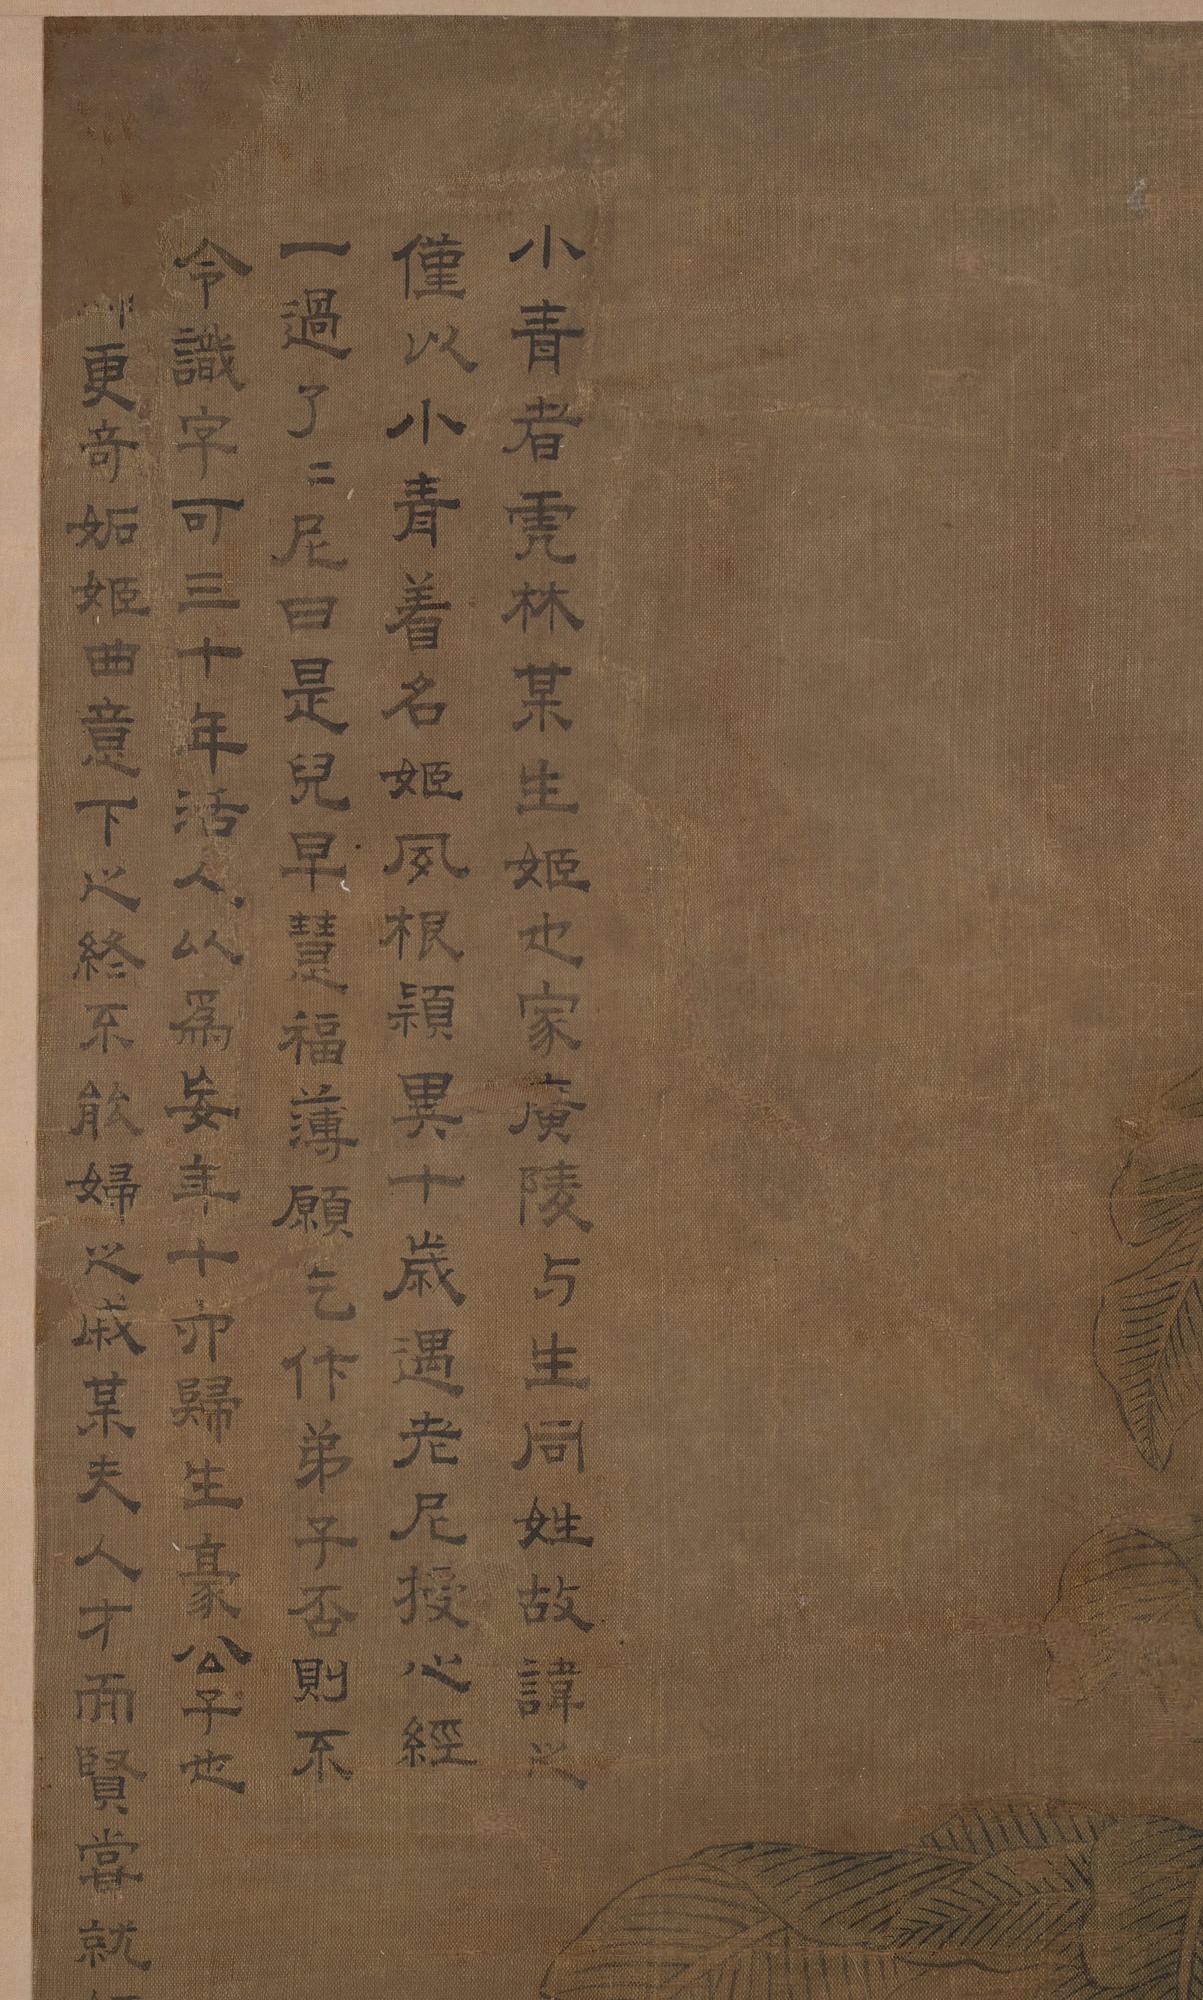 小青者虎林某生姬也家廣陵与生同姓故諱之
僅以小青着名姬夙根穎異十歳遇老尼授心經
一過了二尼曰是兒早慧福薄願乞作弟子否則不
令識字可三十年活人以為妾年十六歸生豪公子也
更奇妬姬曲意下之終不能婦之戚某夫人才而賢嘗就